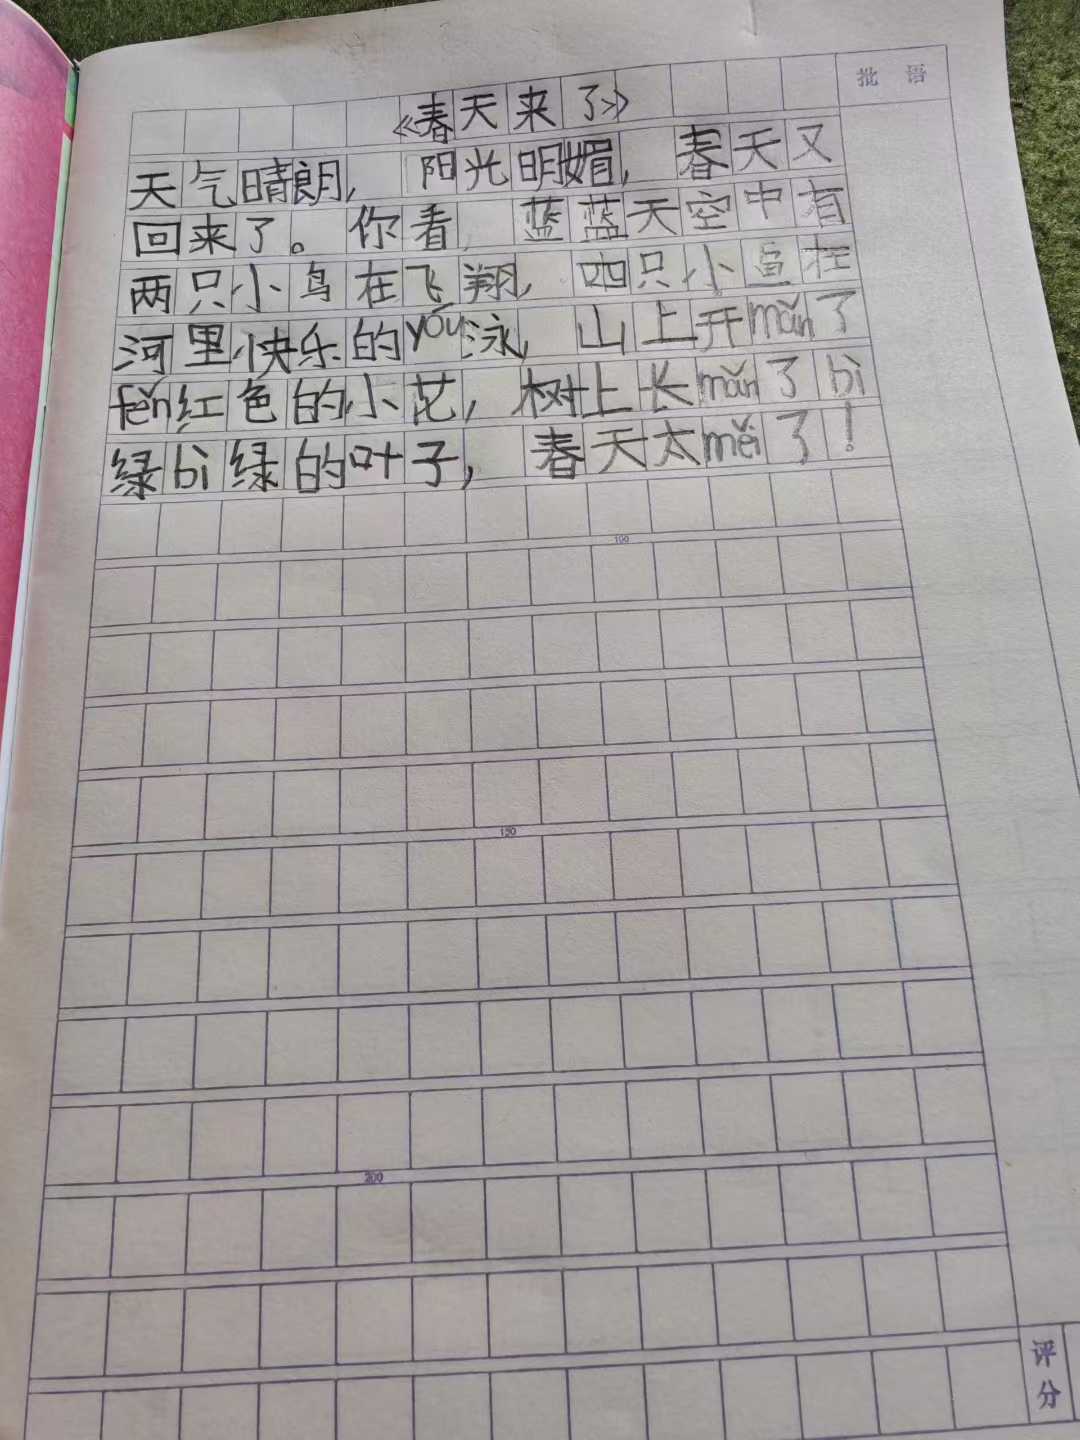 批 语
《春天来了》
天气晴朗, 阳光明媚, 春天又
回来了。你看, 蓝蓝天空中有
两只小鸟在飞翔, 四只小鱼在
河里快乐的yóu泳, 山上开mǎn了
fěn红色的小花, 树上长mǎn了bì
绿bì绿的叶子, 春天太měi了!
100
150
200
评分